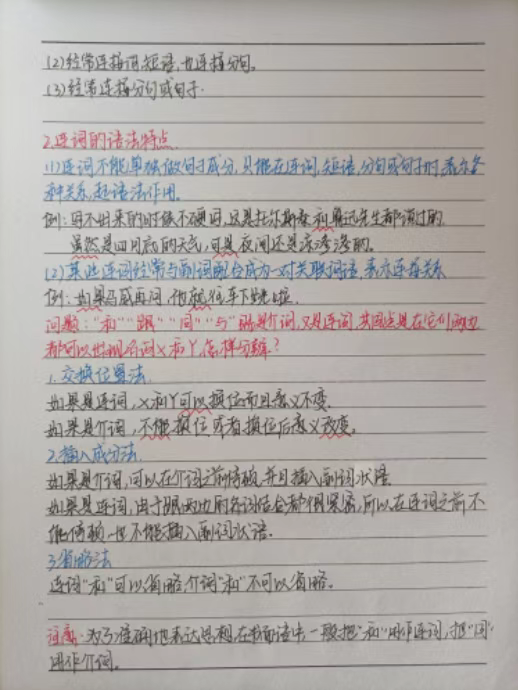 (2)经常连接词、短语,也连接分句。
(3)经常连接分句或句子.
2.连词的语法特点.
(1)连词不能单独做句子成分,只能在连词,短语,分句或句子时,表示各
种关系,起语法作用.
例:写不出来的时候不硬写,这是托尔斯泰和鲁迅先生都谈过的.
虽然是四月底的天气,可是夜间还是凉渗渗的.
(2)某些连词经常与副词配合成为一对关联词语,表示连接关系
例:如果马威再问,他就往车下跳啦.
问题:"和""跟""同""与"既是介词,又是连词,其共点是在它们两边
都可以出现名词X和Y,怎样分辨?
1.交换位置法
如果是连词,X和Y可以换位而且意义不变.
如果是介词,不能换位或者换位后意义改变。
2.插入成分法.
如果是介词,可以在介词之前停顿,并且插入副词状语
如果是连词,由于跟两边的名词结合都很紧密,所以在连词之前不
能停顿,也不能插入副词状语.
3.省略法
连词"和"可以省略,介词"和"不可以省略.
注意:为了准确地表达思想,在书面语中一般把"和"用作连词,把"同"
用作介词。